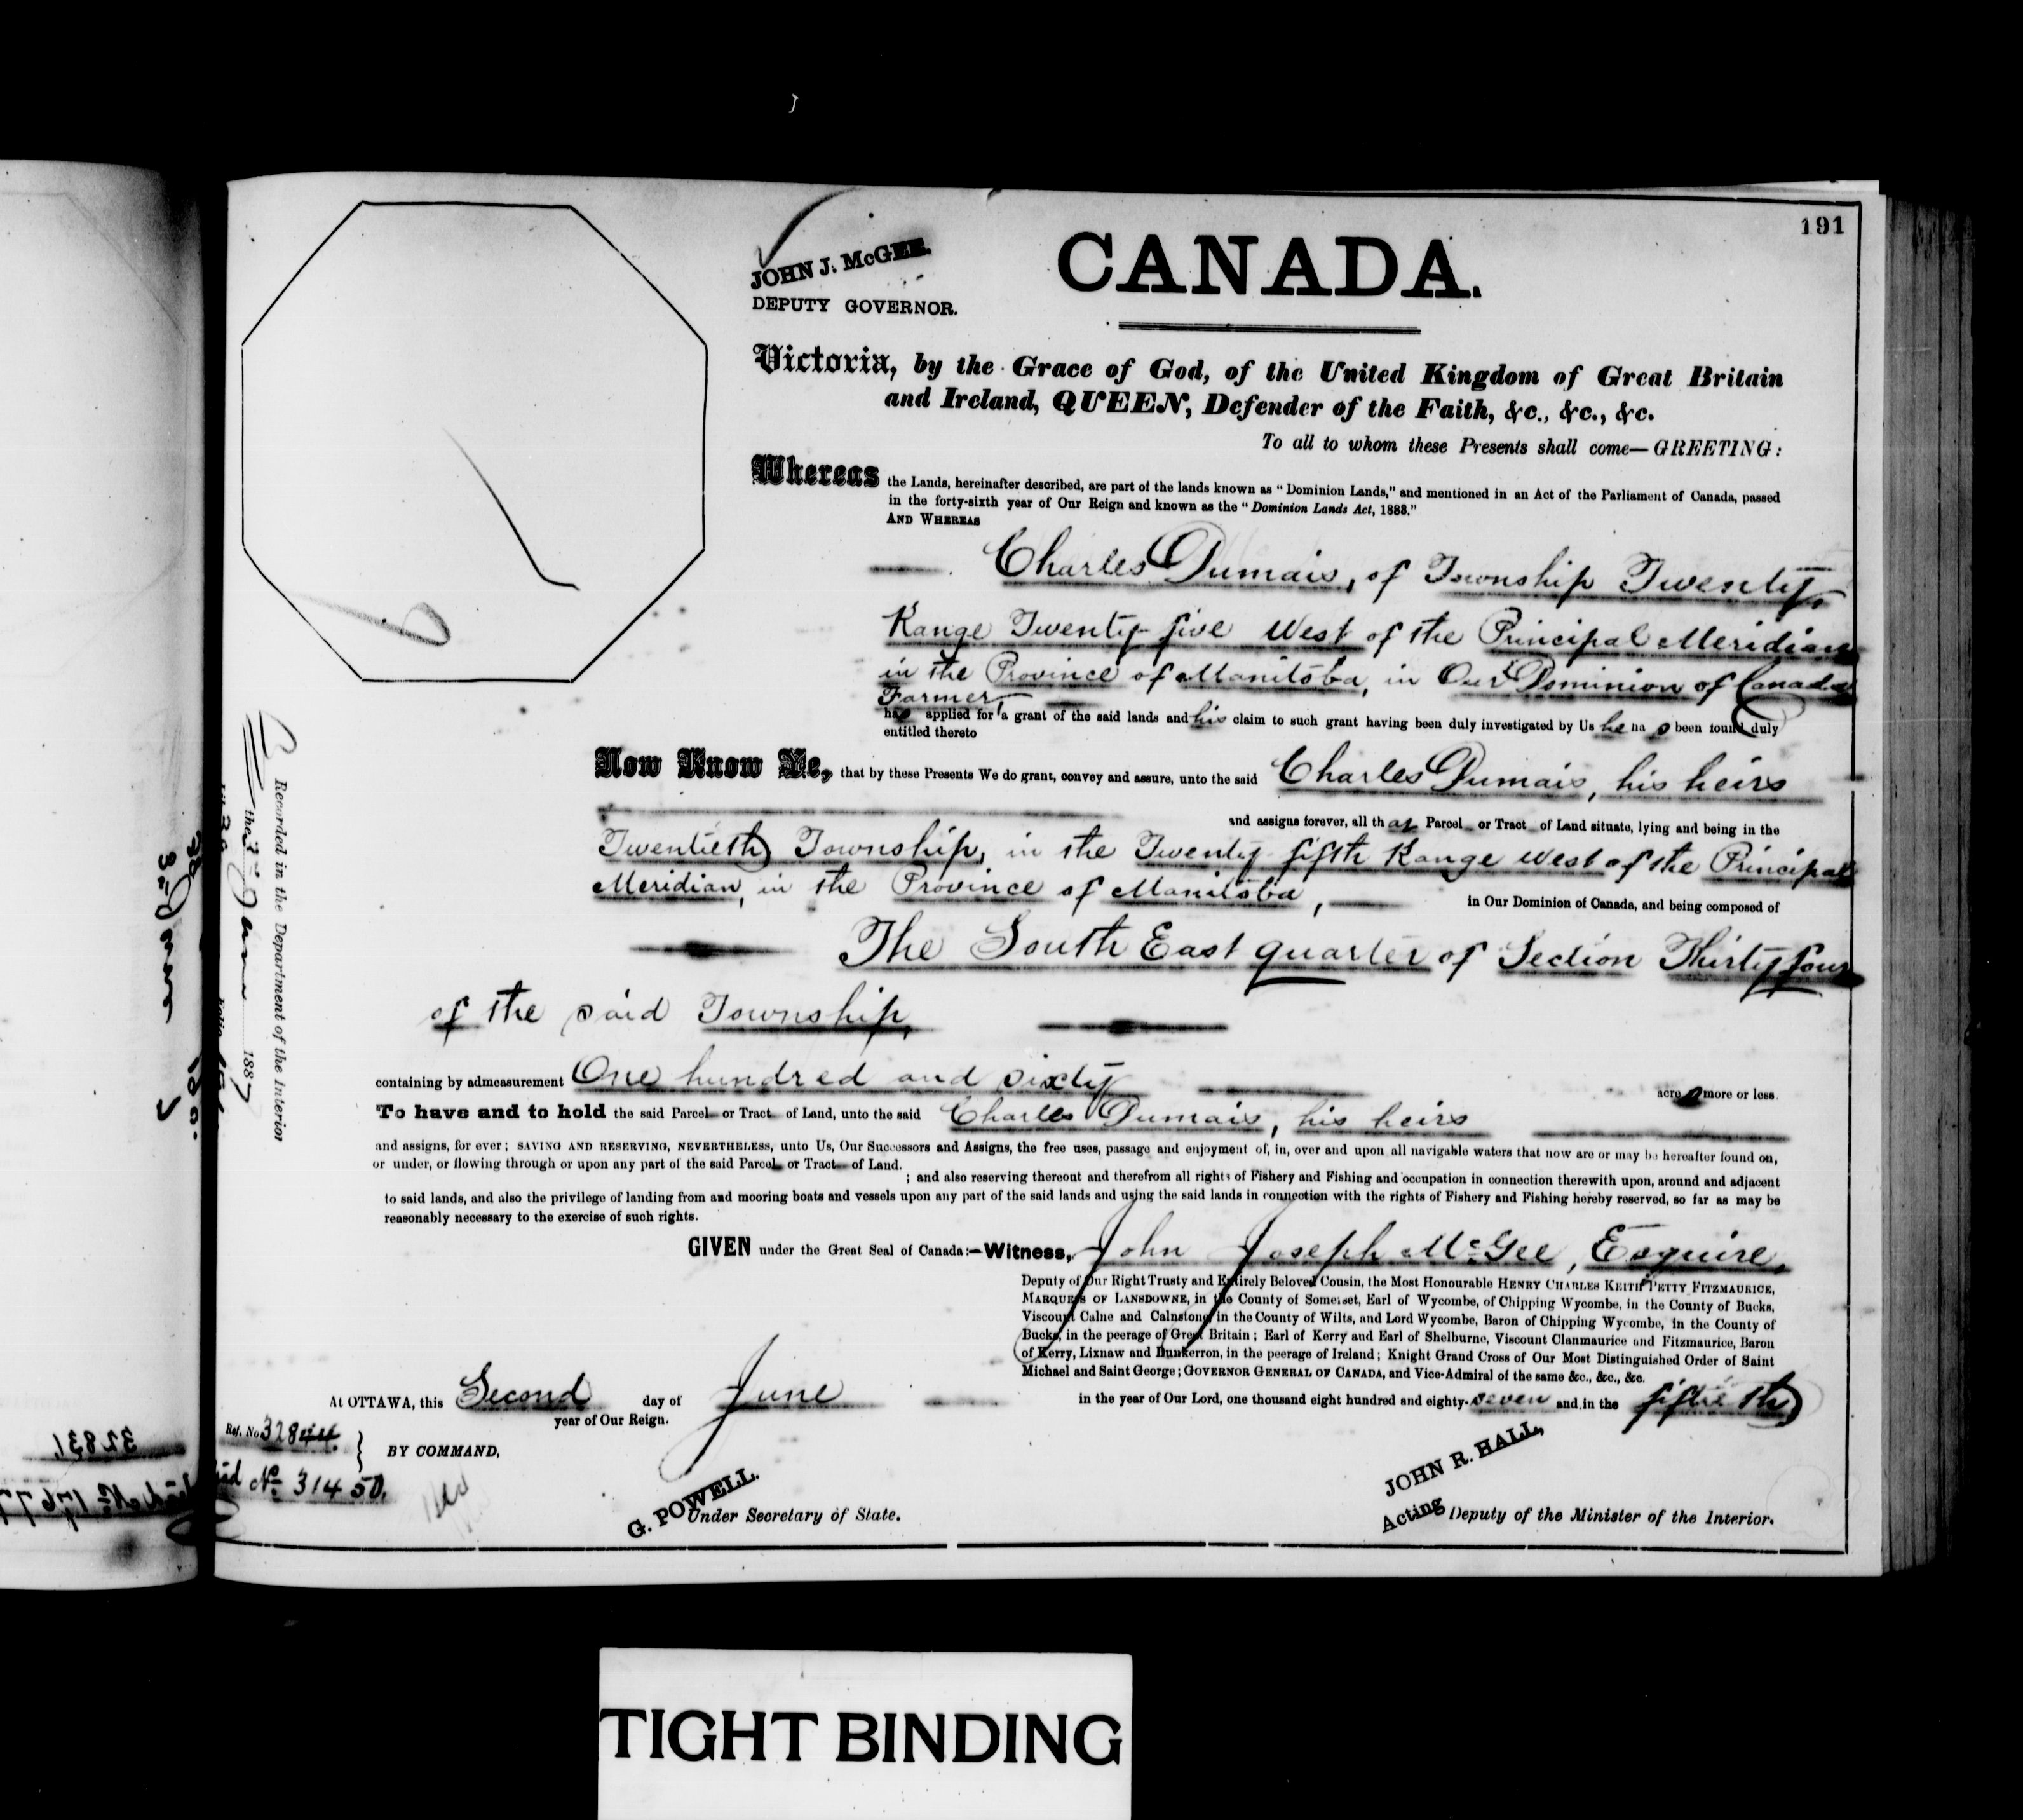 191
JOHN J. McGEE.
DEPUTY GOVERNOR.
CANADA.
Victoria, by the Grace of God, of the United Kingdom of Great Britain
and Ireland, QUEEN, Defender of the Faith, &c., &c., &c.
To all to whom these Presents shall come—GREETING:
Whereas the Lands, hereinafter described, are part of the lands known as "Dominion Lands," and mentioned in an Act of the Parliament of Canada, passed
in the forty-sixth year of Our Reign and known as the "Dominion Lands Act, 1883."
AND WHEREAS
Charles Dumais, of Township Twenty,
Range Twenty-five West of the Principal Meridian
in the Province of Manitoba, in Our Dominion of Canada
Farmer,
has applied for a grant of the said lands and his claim to such grant having been duly investigated by Us he has been found duly
entitled thereto
Now Know Ye, that by these Presents We do grant, convey and assure, unto the said Charles Dumais, his heirs
and assigns forever, all that Parcel or Tract of Land situate, lying and being in the
Twentieth Township, in the Twenty-fifth Range West of the Principal
Meridian, in the Province of Manitoba, in Our Dominion of Canada, and being composed of
The South East quarter of Section Thirty four
of the said Township,
containing by admeasurement One hundred and sixty acres more or less.
To have and to hold the said Parcel or Tract of Land, unto the said Charles Dumais, his heirs
and assigns, for ever; SAVING AND RESERVING, NEVERTHELESS, unto Us, Our Successors and Assigns, the free uses, passage and enjoyment of, in, over and upon all navigable waters that now are or may be hereafter found on,
or under, or flowing through or upon any part of the said Parcel or Tract of Land.
; and also reserving thereout and therefrom all rights of Fishery and Fishing and occupation in connection therewith upon, around and adjacent
to said lands, and also the privilege of landing from and mooring boats and vessels upon any part of the said lands and using the said lands in connection with the rights of Fishery and Fishing hereby reserved, so far as may be
reasonably necessary to the exercise of such rights.
GIVEN under the Great Seal of Canada:—Witness, John Joseph McGee, Esquire,
Deputy of Our Right Trusty and Entirely Beloved Cousin, the Most Honourable HENRY CHARLES KEITH PETTY FITZMAURICE,
MARQUESS OF LANSDOWNE, in the County of Somerset, Earl of Wycombe, of Chipping Wycombe, in the County of Bucks,
Viscount Calne and Calnstone in the County of Wilts, and Lord Wycombe, Baron of Chipping Wycombe, in the County of
Bucks, in the peerage of Great Britain; Earl of Kerry and Earl of Shelburne, Viscount Clanmaurice and Fitzmaurice, Baron
of Kerry, Lixnaw and Dunkerron, in the peerage of Ireland; Knight Grand Cross of Our Most Distinguished Order of Saint
Michael and Saint George; GOVERNOR GENERAL OF CANADA, and Vice-Admiral of the same &c., &c., &c.
At OTTAWA, this Second day of June in the year of Our Lord, one thousand eight hundred and eighty-seven and in the fiftieth
year of Our Reign.
Ref. No 32844.
BY COMMAND,
No. 31450.
G. POWELL.
Under Secretary of State.
JOHN R. HALL,
Acting Deputy of the Minister of the Interior.
Recorded in the Department of the Interior
the 3rd June 1887
32831
TIGHT BINDING